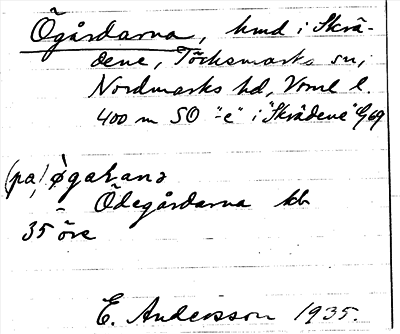 Ögårdarna, hmd i Skrä-
dene, Töcksmarks sn,
Nordmarks hd, Vrml l.
400 m SO "e" i "Skrädene" G69
(pa) øgaƚana
Ödegårdarna kb
35 öre
E. Andersson 1935.